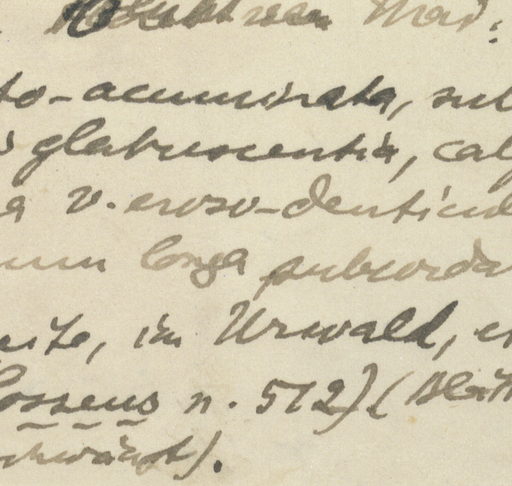 Mori:
to-acuminata, sub
glabrescentia, caly
a v. eroso-denticul
longa subcorda
eite, im Urwald, e
Kossens n. 512) (Blätt
schwärzt).